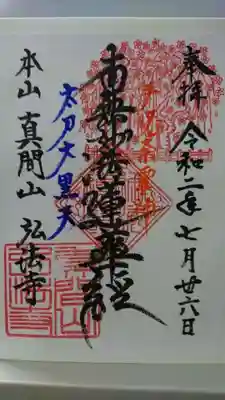 奉拝 令和二年七月廿六日
南無妙法蓮華経
太刀大黒天
本山 真間山 弘法寺